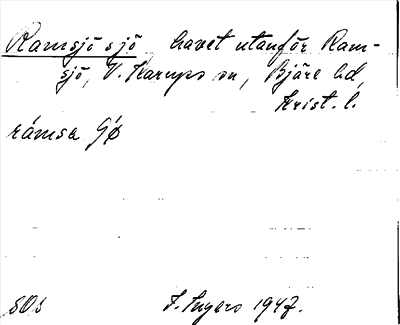 Ramsjö sjö havet utanför Ram-
sjö, V. Karups sn, Bjäre hd,
Krist. l.
rámsa
SOS I. Ingers 1947.